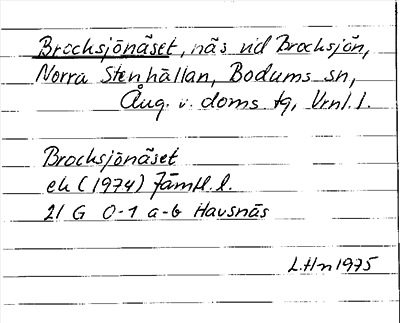 Brocksjönäset, näs vid Brocksjön,
Norra Stenhällan, Bodums sn,
Ång. v. doms tg, Vrnl. l.
Brocksjönäset
ek (1974) Jämtl. l.
21 G 0-1 a-b Havsnäs
L.Hn 1975